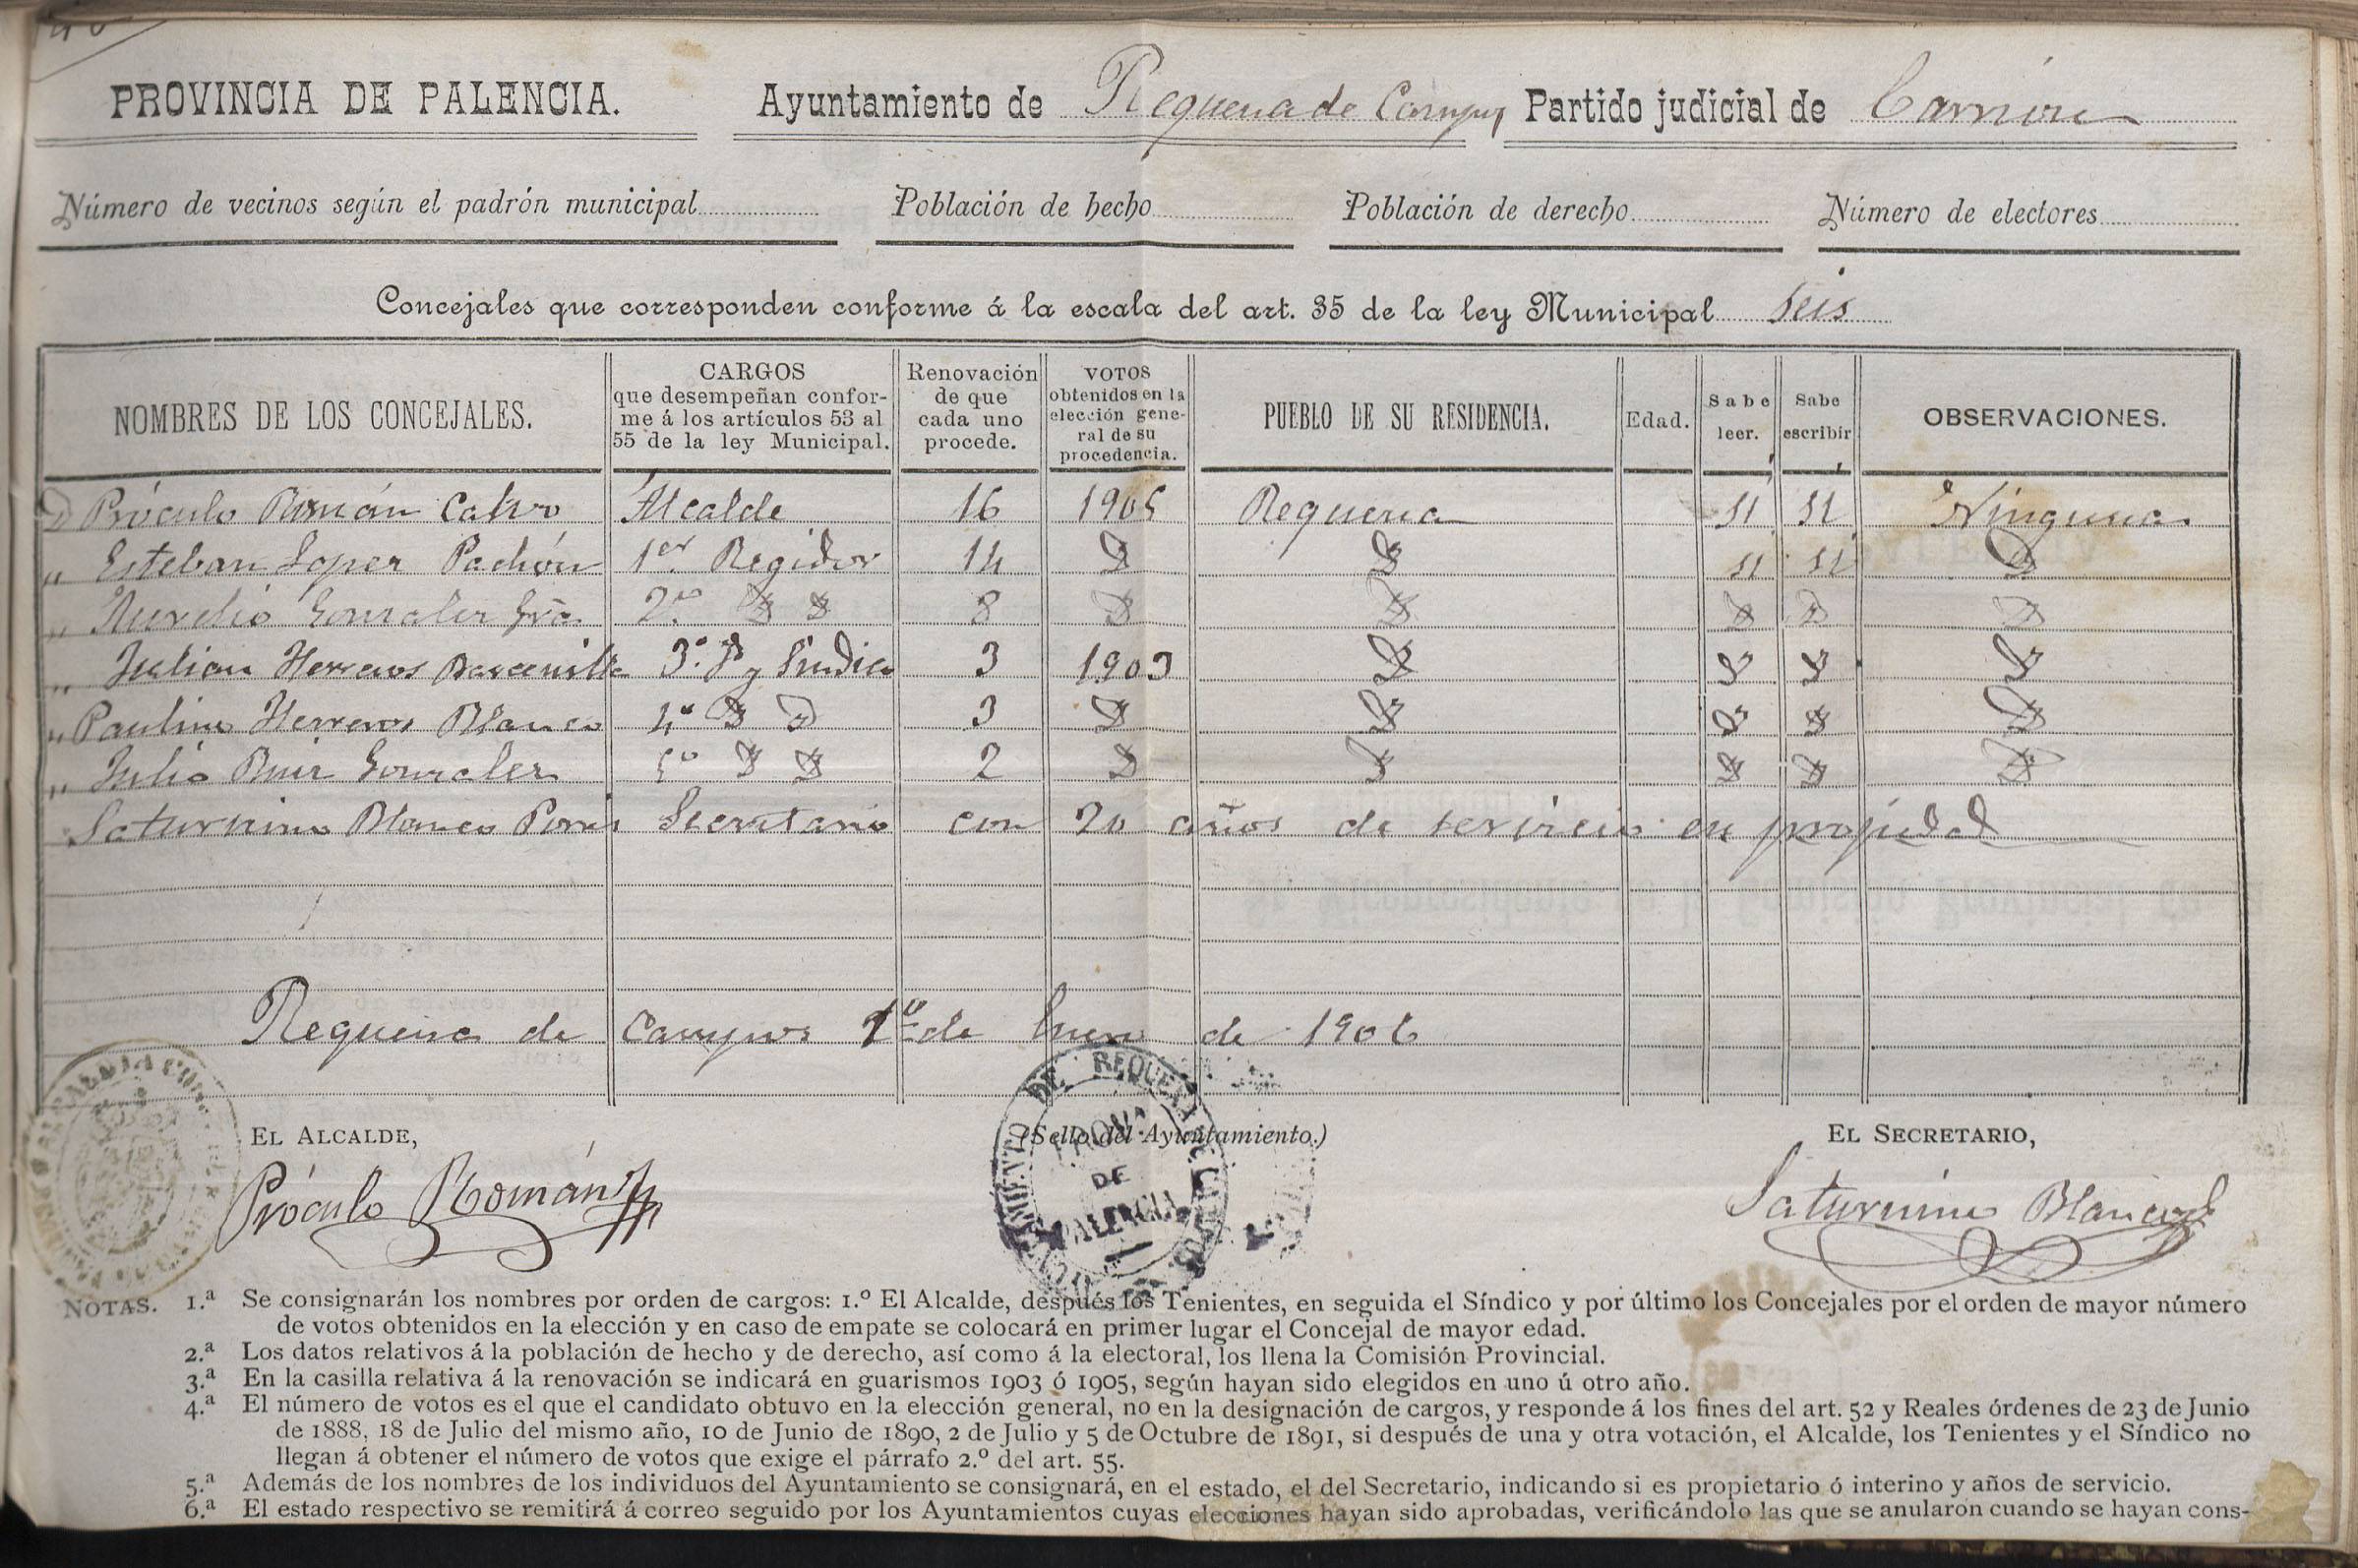 PROVINCIA DE PALENCIA. Ayuntamiento de Requena de Campos Partido judicial de Carrión
Número de vecinos según el padrón municipal Población de hecho Población de derecho Número de electores
Concejales que corresponden conforme á la escala del art. 35 de la ley Municipal seis
NOMBRES DE LOS CONCEJALES. CARGOS que desempeñan conforme á los artículos 53 al 55 de la ley Municipal. Renovación de que cada uno procede. VOTOS obtenidos en la elección general de su procedencia. PUEBLO DE SU RESIDENCIA. Edad. Sabe leer. Sabe escribir OBSERVACIONES.
D Próculo Román Calvo Alcalde 16 1905 Requena sí sí Ninguna
" Esteban Lopez Pachón 1er Regidor 14 D D sí sí D
" Aurelio Gonzalez 2º D D 8 D D D D D
" Julian Herreros Barcenilla 3º D y Sindico 3 1903 D D D D
" Paulino Herreros Blanco 4º D D 3 D D D D D
" Julio Ruiz Gonzalez 5º D D 2 D D D D D
Saturnino Blanco Porras Secretario con 20 años de servicio en propiedad
Requena de Campos 1º de Enero de 1906
EL ALCALDE, (Sello del Ayuntamiento.) EL SECRETARIO,
DE REQUENA
PROVA
DE
PALENCIA
Próculo Román Saturnino Blanco
NOTAS. 1.ª Se consignarán los nombres por orden de cargos: 1.º El Alcalde, después los Tenientes, en seguida el Síndico y por último los Concejales por el orden de mayor número
de votos obtenidos en la elección y en caso de empate se colocará en primer lugar el Concejal de mayor edad.
2.ª Los datos relativos á la población de hecho y de derecho, así como á la electoral, los llena la Comisión Provincial.
3.ª En la casilla relativa á la renovación se indicará en guarismos 1903 ó 1905, según hayan sido elegidos en uno ú otro año.
4.ª El número de votos es el que el candidato obtuvo en la elección general, no en la designación de cargos, y responde á los fines del art. 52 y Reales órdenes de 23 de Junio
de 1888, 18 de Julio del mismo año, 10 de Junio de 1890, 2 de Julio y 5 de Octubre de 1891, si después de una y otra votación, el Alcalde, los Tenientes y el Síndico no
llegan á obtener el número de votos que exige el párrafo 2.º del art. 55.
5.ª Además de los nombres de los individuos del Ayuntamiento se consignará, en el estado, el del Secretario, indicando si es propietario ó interino y años de servicio.
6.ª El estado respectivo se remitirá á correo seguido por los Ayuntamientos cuyas elecciones hayan sido aprobadas, verificándolo las que se anularon cuando se hayan cons-